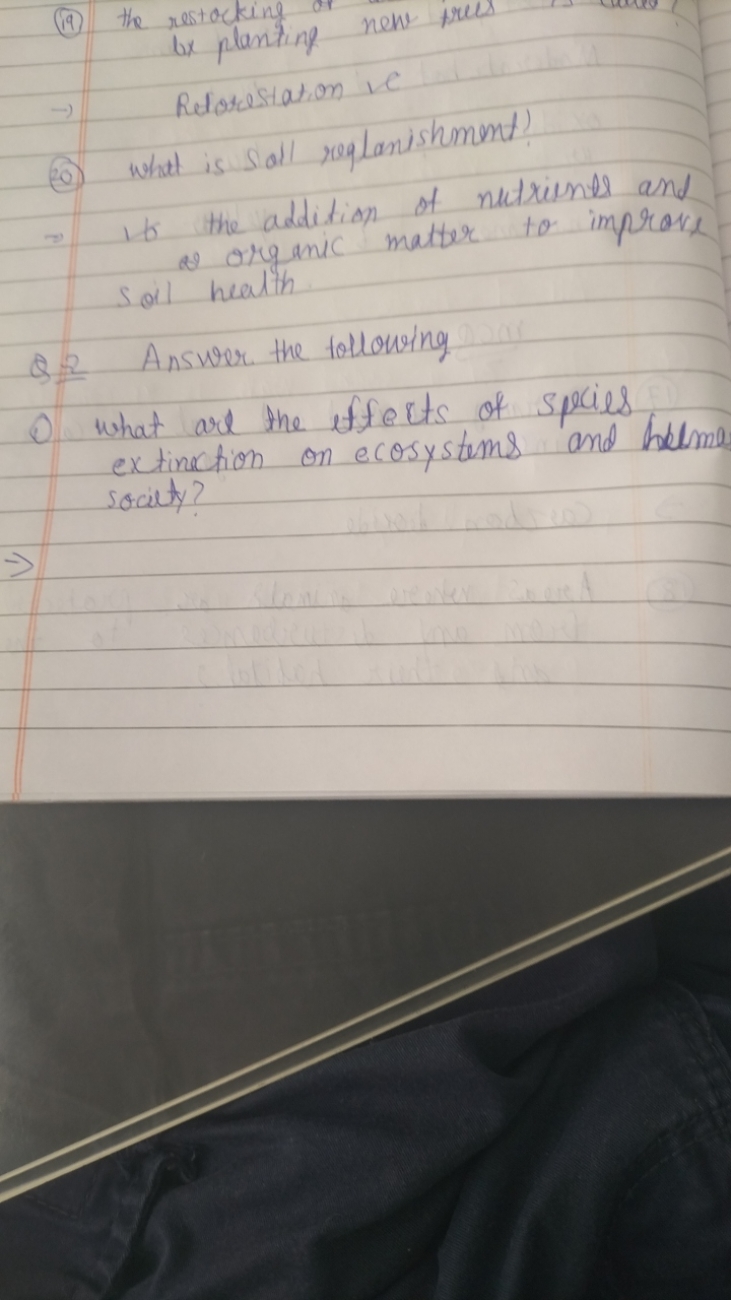 (19) the restocking of
by planting new trees is called?
→ Reforestation
(20) What is Soil reglanishment?
→ its the addition of nutrients and
organic matter to improve
soil health
Q 2 Answer the following
1) what are the effects of species
extinction on ecosystems and huma
society?
→